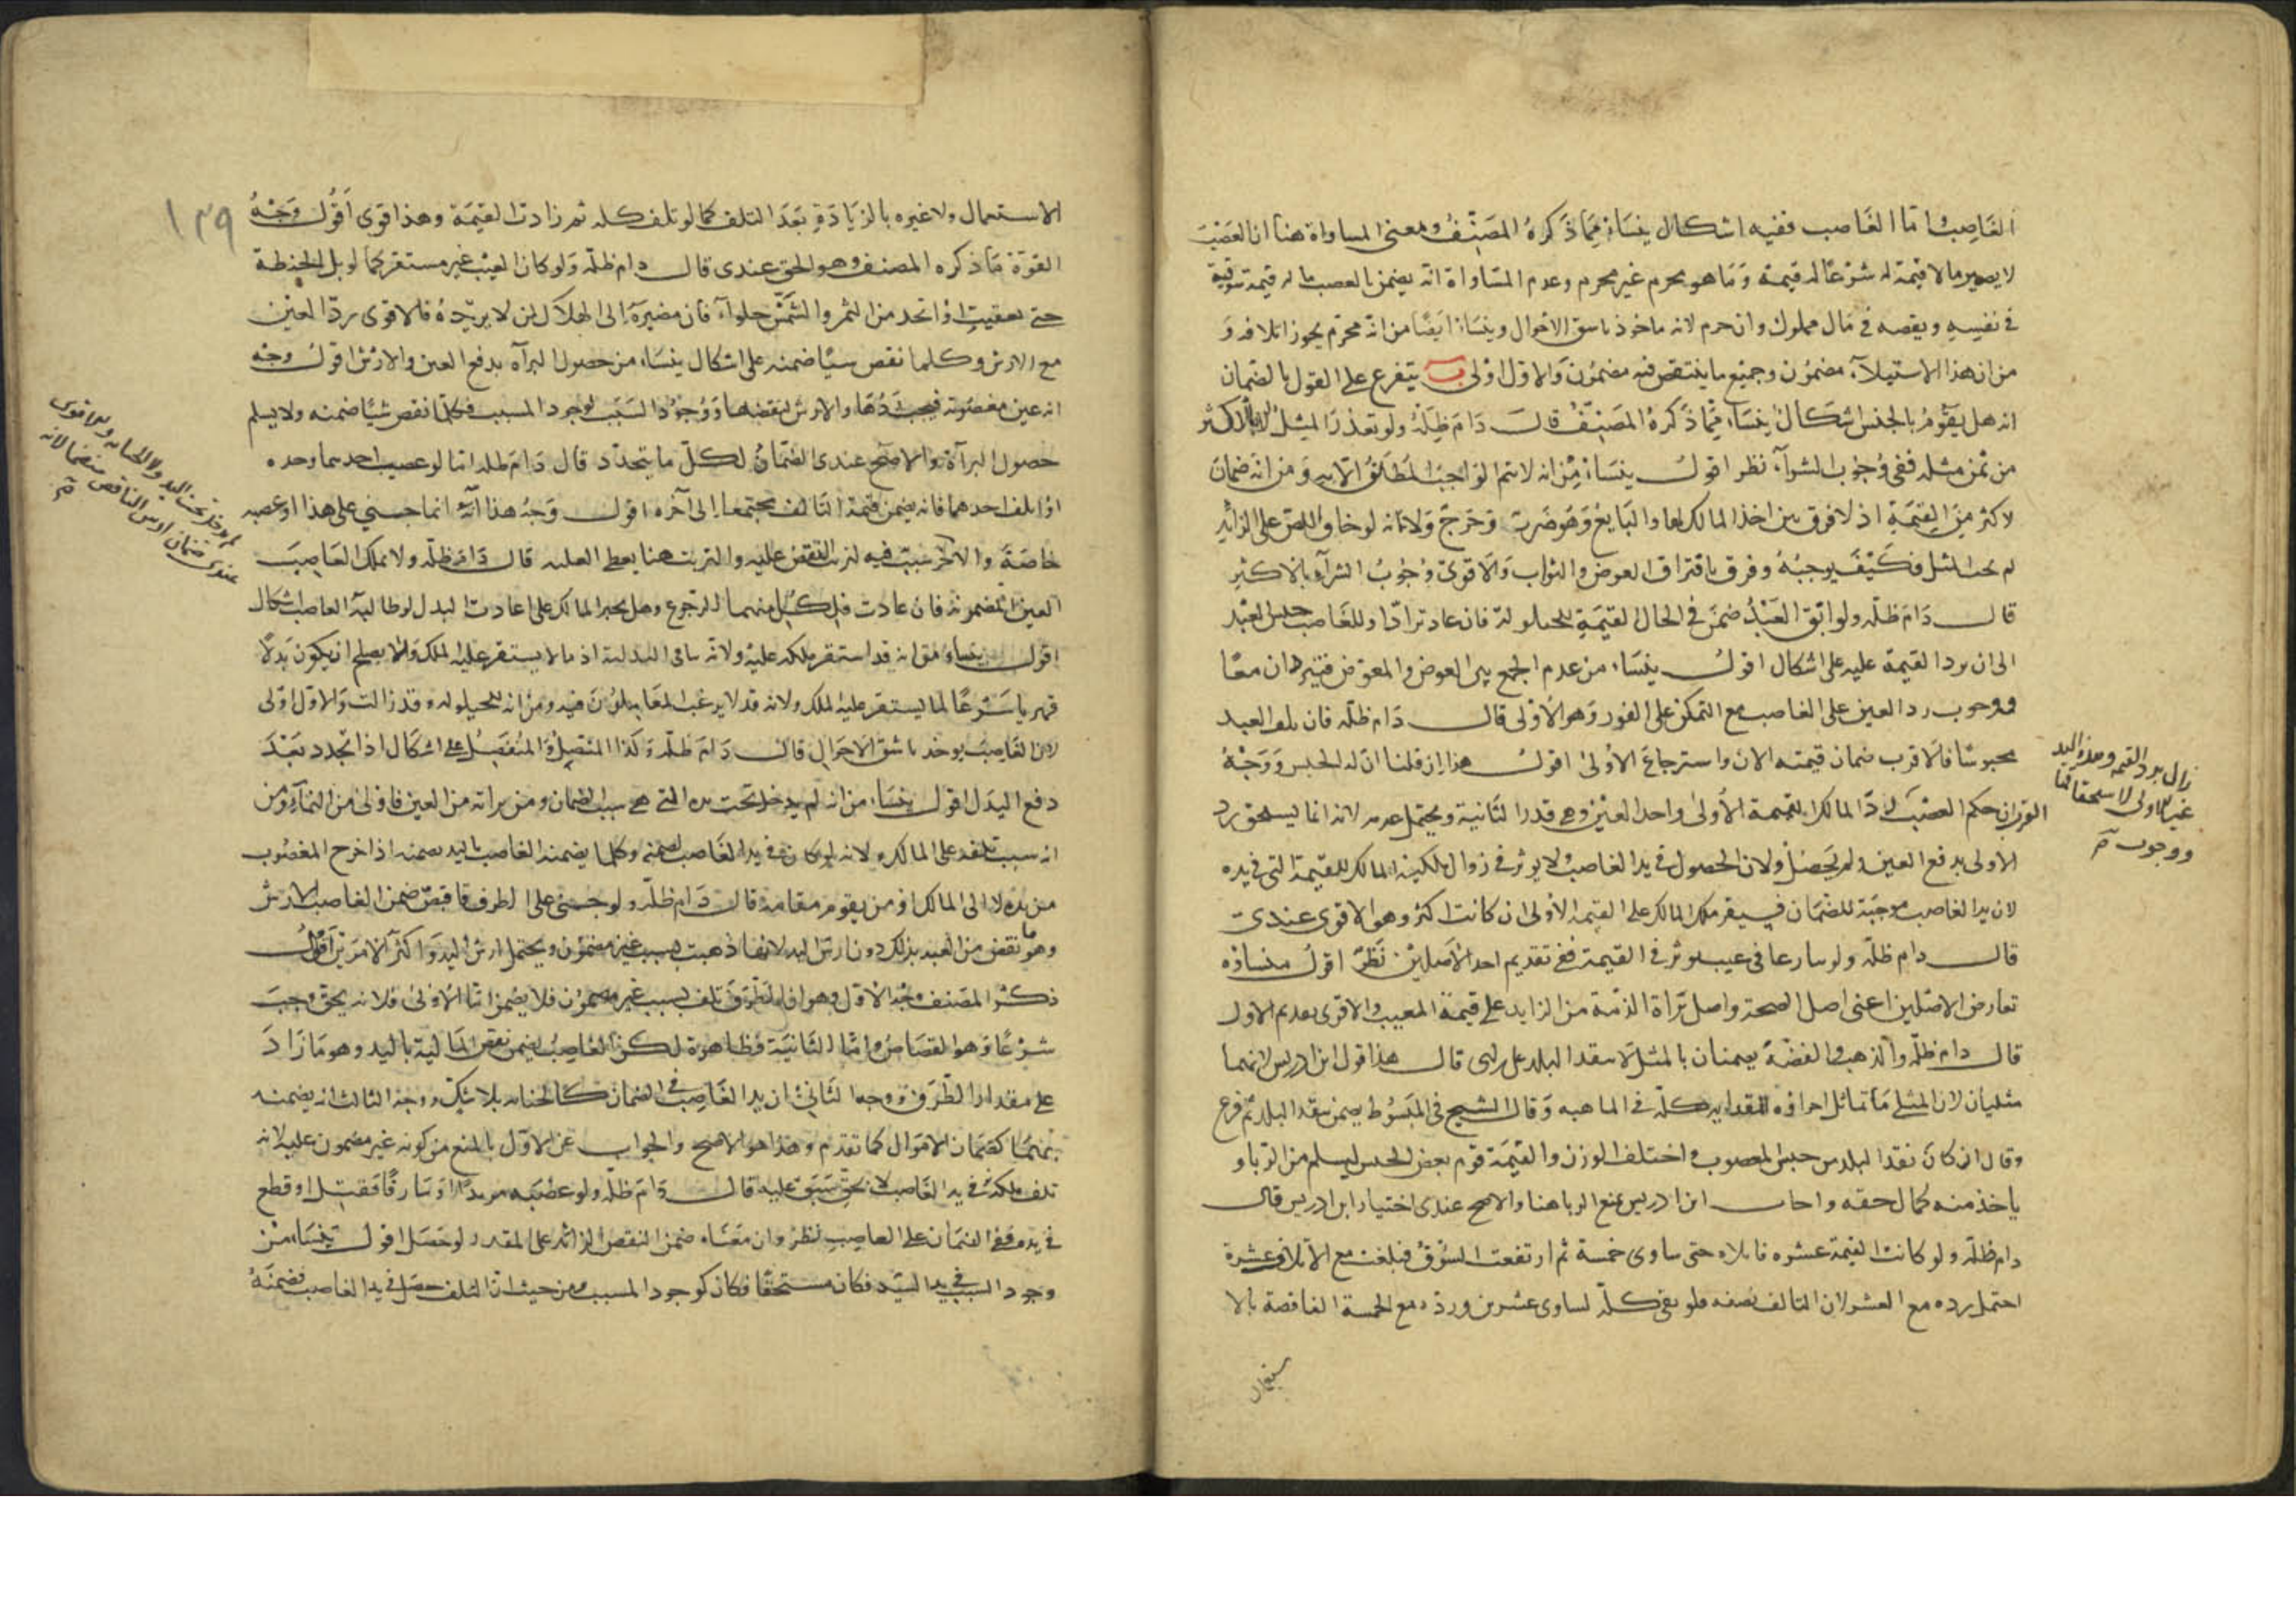 الغاصب اما الغاصب ففيه اشكال ينشأ مما ذكره المصنف ومعنى المساواة هنا ان الغصب
لا يصير ما لا قيمة له شرعا له قيمة وما هو محرم غير محرم وعدم المساواة انه يضمن بالغصب ما له قيمة
في نفسه ونقصه في مال مملوك وان حرم لانه ماخوذ باشق الاحوال وينشأ ايضا من انه محرم يجوز اتلافه و
من ان هذا الاستيلاء مضمون وجميع ما ينتقص فيه مضمون والاول اولى يتفرع على القول بالضمان
انه هل يقوم بالجنس اشكال ينشأ مما ذكره المصنف قال دام ظله ولو تعذر المثل الا بالاكثر
من ثمن مثله ففي وجوب الشراء نظر اقول ينشأ من انه لا يتم الواجب المطلق الا به ومن انه ضمان
لاكثر من القيمة اذ لا فرق بين اخذ المالك لها والبايع وهو ضرر وحرج ولانه لو خاف اللص على الزائد
لم يجب المثل فكيف يوجبه وفرق بافتراق العوض والثواب والاقوى وجوب الشراء بالاكثر
قال دام ظله ولو ابق العبد ضمن في الحال القيمة للحيلولة فان عاد ترادا وللغاصب حبس العبد
الى ان يرد القيمة عليه على اشكال اقول ينشأ من عدم الجمع بين العوض والمعوض فيتردان معا
ووجوب رد العين على الغاصب مع التمكن على الفور وهو الاولى قال دام ظله فان تلف العبد
محبوسا فالاقرب ضمان قيمته الان واسترجاع الاولى اقول هذا ان قلنا ان له الحبس ووجه
القرب ان حكم الغصب رد المالك القيمة الاولى واخذ العين وهي قدر الثانية ويحتمل عدمه لانه انما يستحق رد
الاولى بدفع العين ولم يحصل ولان الحصول في يد الغاصب لا يوثر في زوال ملكية المالك للقيمة التي في يده
لان يد الغاصب موجبة للضمان فيقر ملك المالك على القيمة الاولى ان كانت اكثر وهو الاقوى عندي
قال دام ظله ولو تنازعا في عيب يوثر في القيمة ففي تقديم احد الاصلين نظر اقول منشاؤه
تعارض الاصلين اعني اصل الصحة واصل براة الذمة من الزايد على قيمة المعيب والاقوى تقديم الاول
قال دام ظله والذهب والفضة يضمنان بالمثل لا بنقد البلد على راى قال هذا قول ابن ادريس لانهما
مثليان لان المثلي ما تماثل اجزاؤه كله في الماهية وقال الشيخ في المبسوط يضمن بنقد البلد ثم فرع
وقال ان كان نقد البلد من جنس المغصوب واختلف الوزن والقيمة قوم بغير الجنس ليسلم من الربا و
ياخذ منه كمال حقه واجاب ابن ادريس بمنع الربا هنا والاصح عندي اختيار ابن ادريس قال
دام ظله ولو كانت القيمة عشره فابلاه حتى ساوى خمسة ثم ارتفعت السوق فبلغت مع الابلاء عشرة
احتمل رده مع العشر لان التالف نصفه فلو بقى كله لساوى عشرين ورده مع الخمسة الناقصة بالا
زال برد القيمه وهذه اليد
غير الاولى لاستحقاقها
ووجوب
١٣٩
الاستعمال ولا عبره بالزيادة بعد التلف كما لو تلف كله ثم زادت القيمة وهذا قوى اقول وجه
القوة ما ذكره المصنف وهو الحق عندي قال دام ظله ولو كان العيب غير مستقر كما لو بل الحنطة
حتى تعفنت او اتخذ من التمر والسمن حلواء فان مصيره الى الهلاك لمن لا يريده فالاقوى رد العين
مع الارش وكلما نقص شيا ضمنه على اشكال ينشأ من حصول البرآه بدفع العين والارش اقول وجه
انه عين مغصوبه فيجب ردها والارش لنقصها ووجود السبب لوجود المسبب فكلما نقص شيا ضمنه ولا يسلم
حصول البرآة والاصح عندي الضمان لكل ما يتجدد قال دام ظله اما لو غصب احدهما وحده
او اتلف احدهما فانه يضمن قيمة التالف مجتمعا الى آخره اقول وجه هذا انه انما جني على هذا او غصبه
خاصة والاخر سبب فيه قال دام ظله ولا يملك الغاصب
العين المضمونة فان عادت فلكل منهما الرجوع وهل يجبر المالك على اعادة البدل لو طالبه الغاصب اشكال
اقول ينشأ من انه قد استقر ملكه عليه ولانه اذ ما لا يستقر عليه الملك لا يصلح ان يكون بدلا
قهريا شرعا لما يستقر عليه الملك ومن انه للحيلوله وقد زالت والاول اولى
لان الغاصب يوخذ باشق الاحوال قال دام ظله وكذا المتصل والمنفصل على اشكال اذا تجدد بعد
دفع البدل اقول ينشأ من انه لم يدخل تحت يده التي هي سبب الضمان ومن براته من العين فاولى من النماء ومن
انه سبب تلفه على المالك لانه لو كان في يد الغاصب لضمنه وكلما يضمنه الغاصب باليد يضمنه اذا خرج المغصوب
من يده لا الى المالك او من يقوم مقامه قال دام ظله ولو جنى على الطرف فاقتص ضمن الغاصب الارش
وهو ما نقص من العبد بذلك دون ارش اليد لانها ذهبت بسبب غير مضمون ويحتمل ارش اليد واكثر الامرين اقول
ذكر المصنف وجه الاول وهو ان الطرف تلف بسبب غير مضمون فلا يضمن اما الاولى فلانه بحق وجب
شرعا وهو القصاص واما الثانية فظاهرة لكن الغاصب يضمن نقص المالية باليد وهو ما زاد
على مقدار الطرف ووجه الثاني ان يد الغاصب في الضمان كالجناية بلا شك ووجه الثالث انه يضمنه
كضمان الاموال كما تقدم وهذا هو الاصح والجواب عن الاول بالمنع من كونه غير مضمون عليه لانه
تلف ملكه في يد الغاصب لا بحق سبق عليه قال دام ظله ولو غصبه مرتدا او سارقا فقتل او قطع
في يده ففي الضمان على الغاصب نظر وان منعناه ضمن النقص الزائد على المقدر لو حصل اقول ينشأ من
وجود السبب في يد السيد فكان مستحقا فكان كوجود المسبب ومن حيث ان التلف حصل في يد الغاصب فضمنه